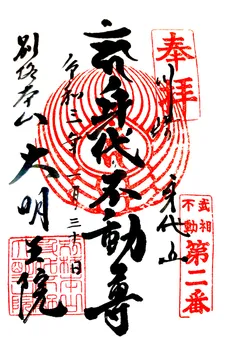 奉拝
川崎
身代山
武相
不動
第二番
身代不動尊
令和三年一月三十日
別格本山
大明王院